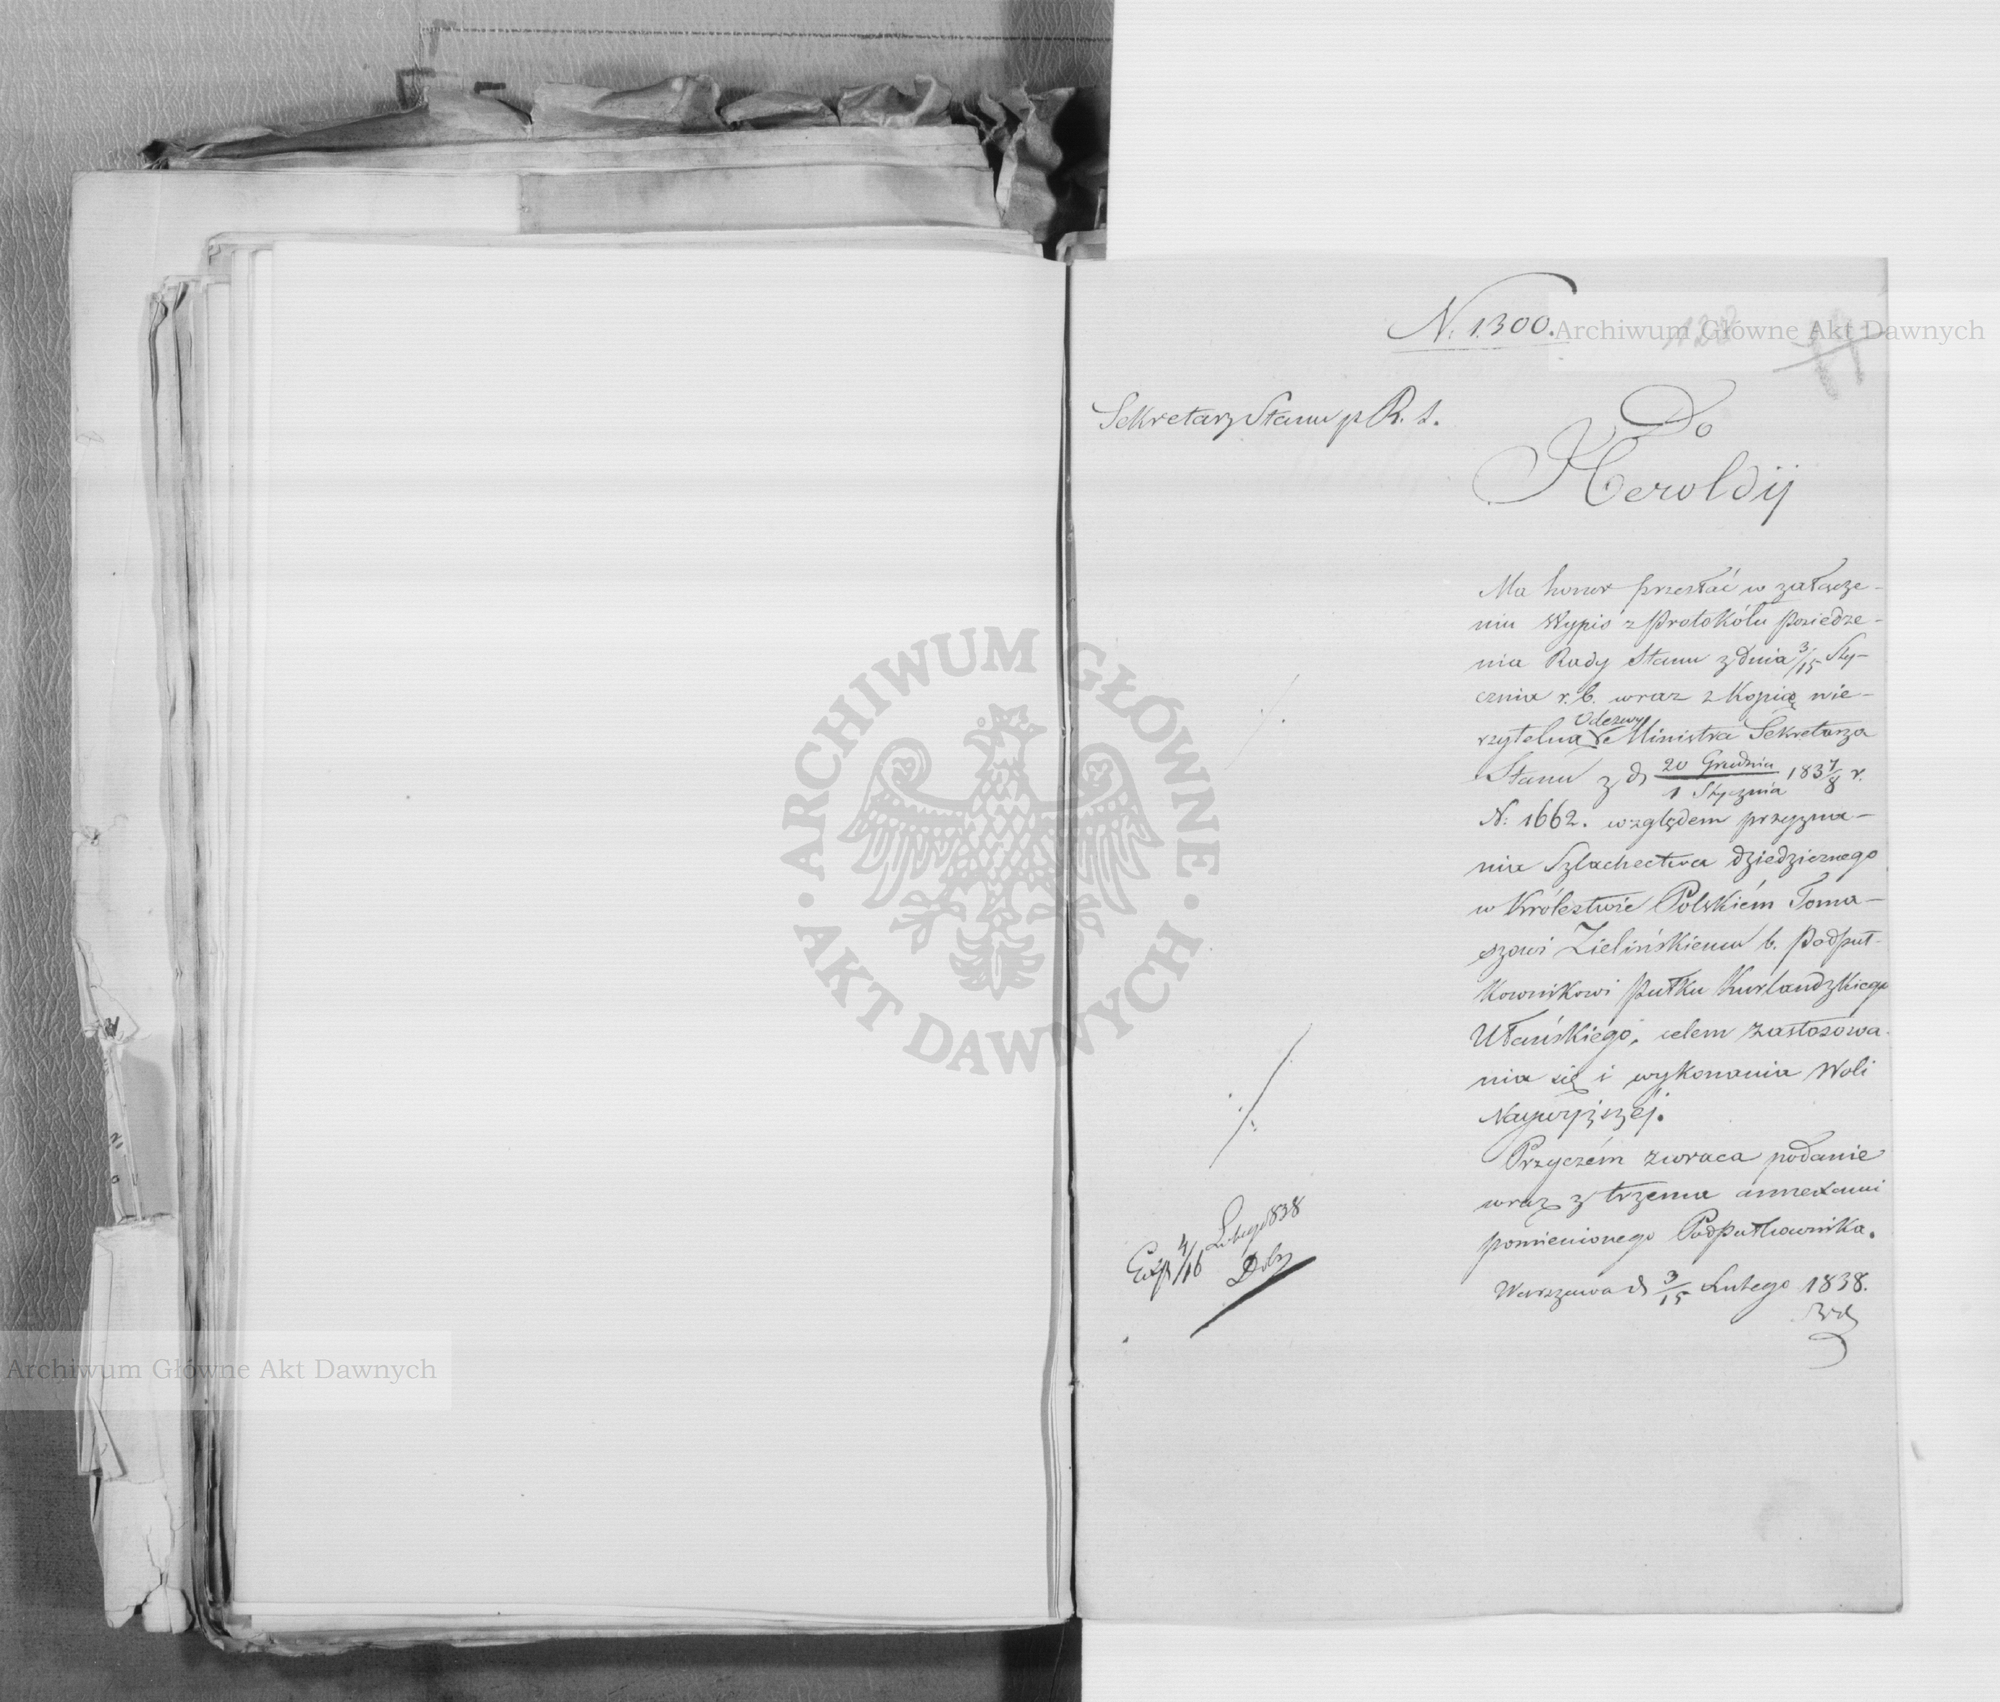 N. 1300.
Sekretarz Stanu p R. S.
Do
Heroldij
Ma honor przesłać w załącze-
niu Wypis z Protokólu Posiedze-
nia Rady Stanu z dnia 3/15 Sty-
cznia r. b. wraz z Kopią wie-
rzytelną Odezwy Ministra Sekretarza
Stanu z d 20 Grudnia / 1 Stycznia 1837/8 r.
N: 1662. względem przyzna-
nia Szlachectwa dziedzicznego
w Królestwie Polskiém Toma-
szowi Zielińskiemu b. Podpuł-
kownikowi Pułku Kurlandzkiego
Ułańskiego, celem zastosowa-
nia się i wykonania Woli
Naywyższéj.
Przyczém zwraca podanie
wraz z trzema annexami
pomienionego Podpułkownika.
Warszawa d 3/15 Lutego 1838.
Exp 4/16 Lutego 838
Archiwum Główne Akt Dawnych
ARCHIWUM GŁÓWNE
AKT DAWNYCH
Archiwum Główne Akt Dawnych